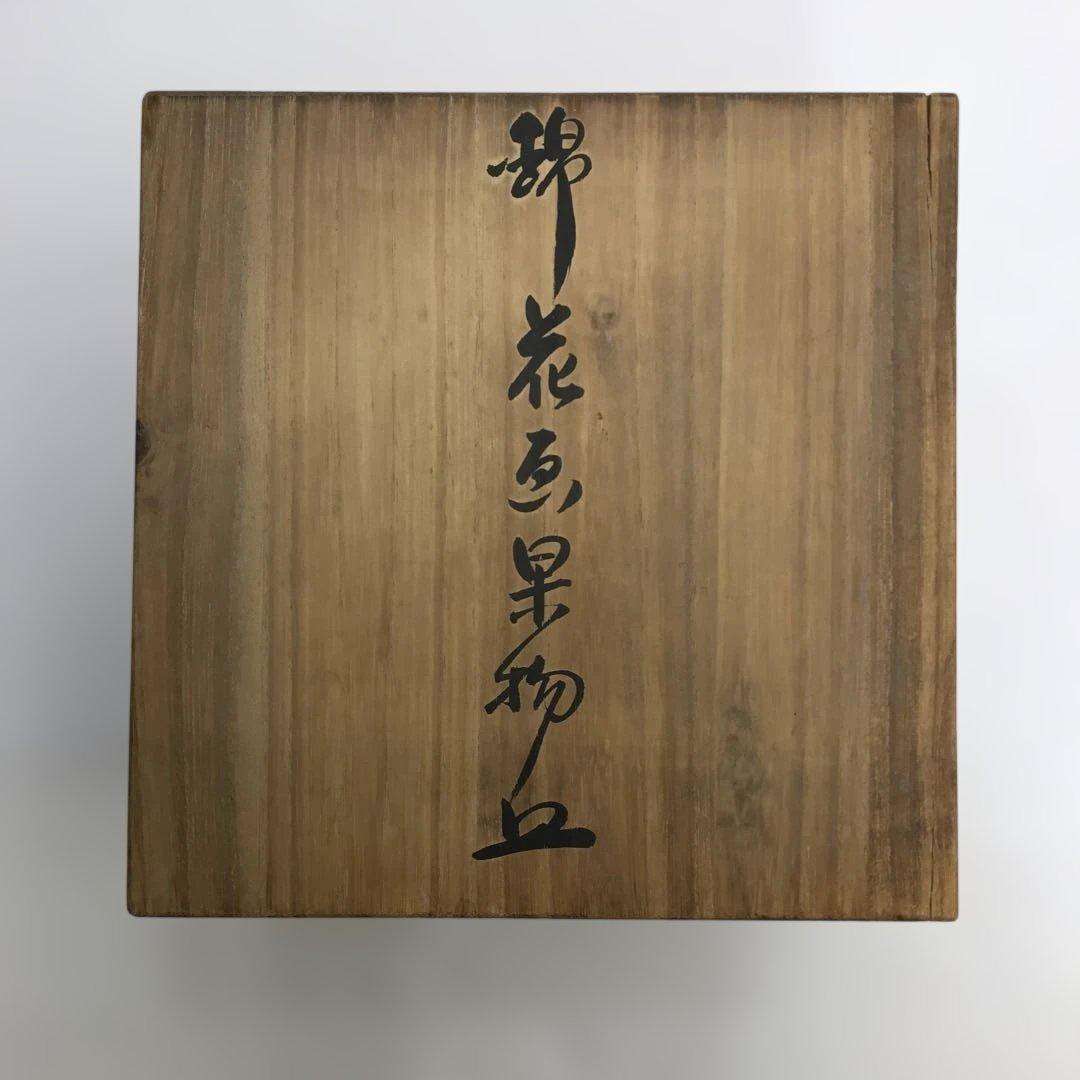 錦花画果物皿